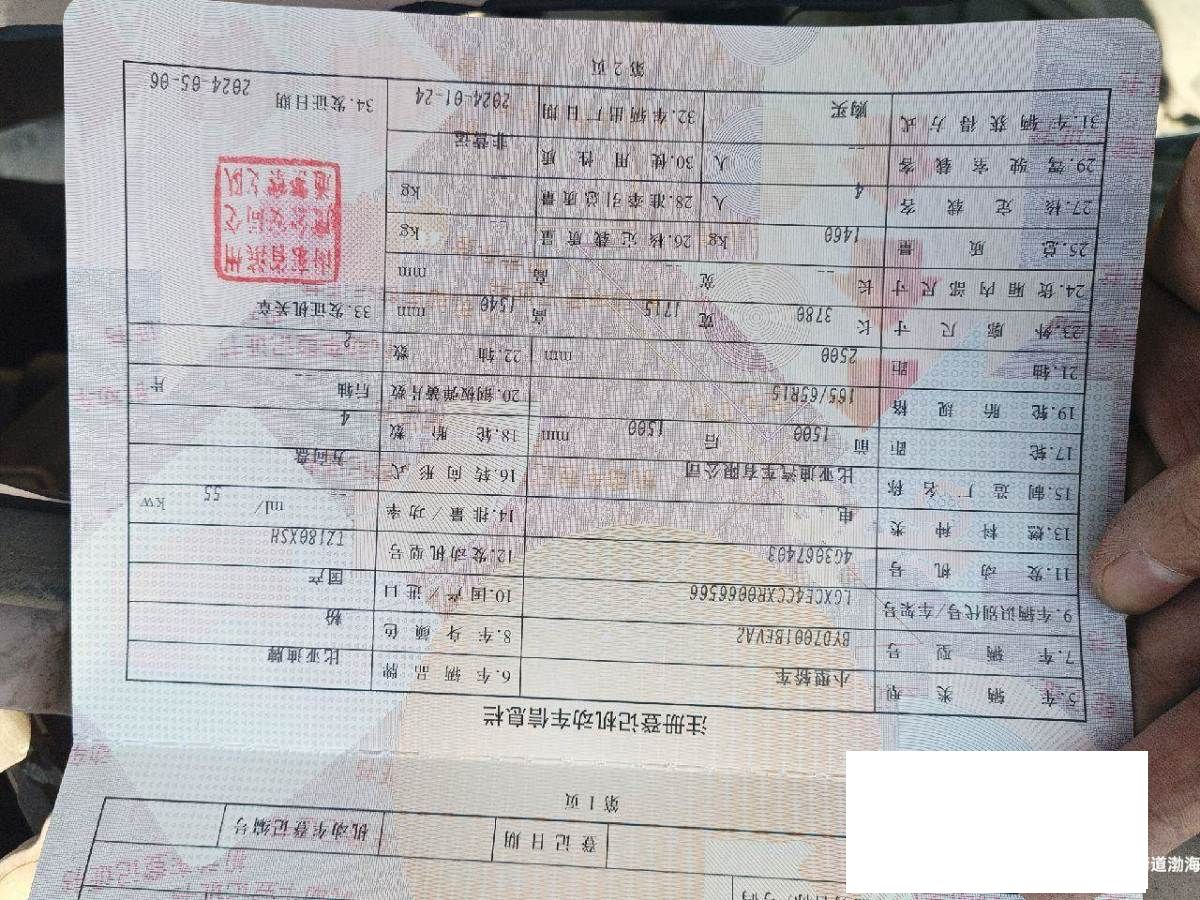 机动车登记编号
登记日期
第1页
注册登记机动车信息栏
5.车辆类型 小型轿车 6.车辆品牌 比亚迪牌
7.车辆型号 BYD7001BEVA2 8.车身颜色 粉
9.车辆识别代号/车架号 LGXCE4CCXR0066566 10.国产/进口 国产
11.发动机号 4G3067403 12.发动机型号 TZ180XSH
13.燃料种类 电 14.排量/功率 -- ml/ 55 kw
15.制造厂名称 比亚迪汽车有限公司 16.转向形式 方向盘
17.轮距 前 1500 后 1500 mm 18.轮胎数 4
19.轮胎规格 165/65R15 20.钢板弹簧片数 后轴 -- 片
21.轴距 2500 mm 22.轴数 2
23.外廓尺寸 长 3780 宽 1715 高 1540 mm 33.发证机关章
24.货厢内部尺寸 长 -- 宽 -- 高 -- mm
25.总质量 1460 kg 26.核定载质量 -- kg
27.核定载客 4 人 28.准牵引总质量 -- kg
29.驾驶室载客 -- 人 30.使用性质 非营运
31.车辆获得方式 购买 32.车辆出厂日期 2024-01-24 34.发证日期 2024-05-06
第2页
道渤海